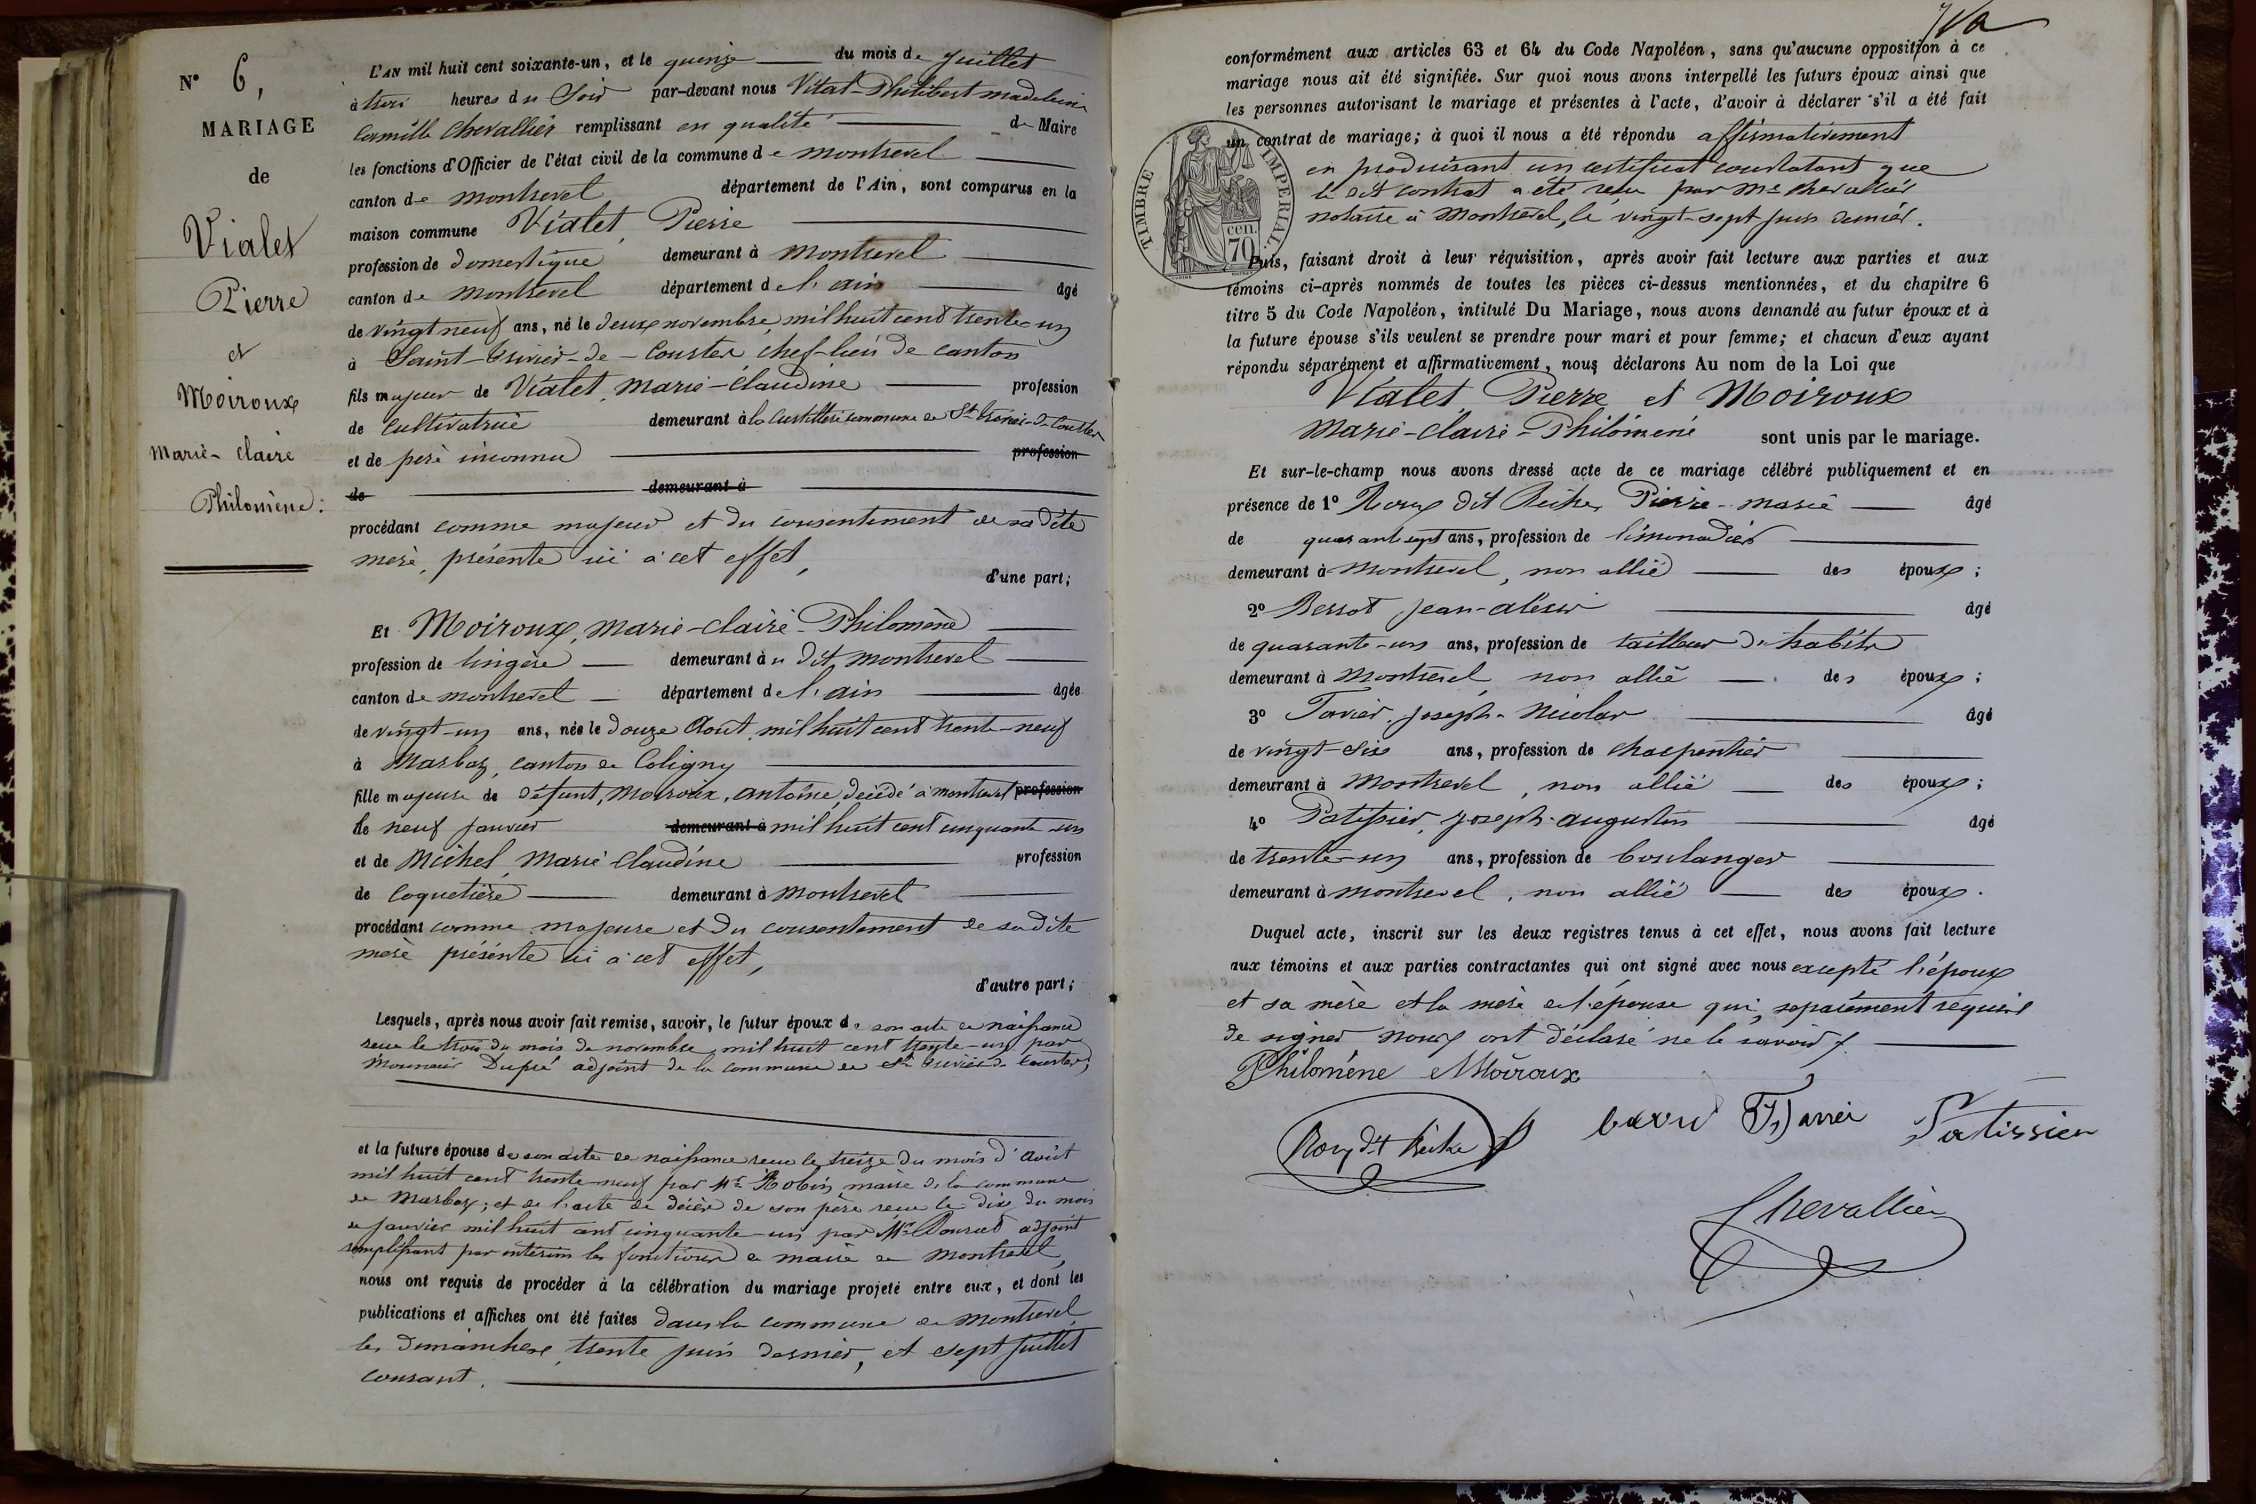 N° 6,
MARIAGE
de
Vialet
Pierre
et
Moiroux
Marie-Claire
Philomène.
L'AN mil huit cent soixante-un, et le quinze du mois de Juillet
à trois heures du Soir par-devant nous Vital-Philibert Madelein
Camille Chevallier remplissant en qualité de Maire
les fonctions d'Officier de l'état civil de la commune de Montrevel
canton de Montrevel département de l'Ain, sont comparus en la
maison commune Vialet, Pierre
profession de domestique demeurant à Montrevel
canton de Montrevel département de l'ain âgé
de vingt neuf ans, né le deux novembre mil huit cent trente-un
à Saint-Trivier-de-Courtes chef-lieu de canton
fils majeur de Vialet, Marie-Claudine profession
de Cultivatrice demeurant à la commune de St Trivier-de-Courtes
et de père inconnu profession
de demeurant à
procédant comme majeur et du consentement de sa dite
mère, présente ici à cet effet,
d'une part;
Et Moiroux, Marie-Claire-Philomène
profession de lingère demeurant à u dit Montrevel
canton de Montrevel département de l'ain âgée
de vingt-un ans, née le douze Aout mil huit cent trente-neuf
à Marboz, canton de Coligny
fille majeure de défunt, Moiroux, Antoine, décédé à Montrevel profession
le neuf Janvier demeurant à mil huit cent cinquante-un
et de Michel, Marie Claudine profession
de Coquetière demeurant à Montrevel
procédant comme majeure et du consentement de sa dite
mère présente ici à cet effet,
d'autre part;
Lesquels, après nous avoir fait remise, savoir, le futur époux de son acte de naissance
reçu le trois du mois de novembre mil huit cent trente-un par
Monsieur Dupré adjoint de la commune de St Trivier de Courtes,
et la future épouse de son acte de naissance reçu le treize du mois d'Aout
mil huit cent trente-neuf par Mr Robin maire de la commune
de Marboz; et de l'acte de décès de son père reçu le dix du mois
de Janvier mil huit cent cinquante-un par Mr adjoint
remplissant par intérim les fonctions de maire de Montrevel,
nous ont requis de procéder à la célébration du mariage projeté entre eux, et dont les
publications et affiches ont été faites dans la commune de Montrevel
les dimanches trente juin dernier, et sept Juillet
courant.
conformément aux articles 63 et 64 du Code Napoléon, sans qu'aucune opposition à ce
mariage nous ait été signifiée. Sur quoi nous avons interpellé les futurs époux ainsi que
les personnes autorisant le mariage et présentes à l'acte, d'avoir à déclarer s'il a été fait
un contrat de mariage; à quoi il nous a été répondu affirmativement
en produisant un certificat constatant que
le dit contrat a été reçu par Me Chevallier
notaire à Montrevel, le vingt-sept juin dernier.
TIMBRE IMPERIAL
70 cen.
Puis, faisant droit à leur réquisition, après avoir fait lecture aux parties et aux
témoins ci-après nommés de toutes les pièces ci-dessus mentionnées, et du chapitre 6
titre 5 du Code Napoléon, intitulé Du Mariage, nous avons demandé au futur époux et à
la future épouse s'ils veulent se prendre pour mari et pour femme; et chacun d'eux ayant
répondu séparément et affirmativement, nous déclarons Au nom de la Loi que
Vialet Pierre et Moiroux
Marie-Claire-Philomène sont unis par le mariage.
Et sur-le-champ nous avons dressé acte de ce mariage célébré publiquement et en
présence de 1° dit Pierre-Marie âgé
de quarante sept ans, profession de limonadier
demeurant à Montrevel, non allié des époux;
2° Jean-Alexis âgé
de quarante-un ans, profession de tailleur d'habits
demeurant à Montrevel, non allié des époux;
3° Joseph-Nicolas âgé
de vingt-six ans, profession de charpentier
demeurant à Montrevel, non allié des époux;
4° Patissier, Joseph-Augustin âgé
de trente-un ans, profession de boulanger
demeurant à Montrevel, non allié des époux.
Duquel acte, inscrit sur les deux registres tenus à cet effet, nous avons fait lecture
aux témoins et aux parties contractantes qui ont signé avec nous excepté l'époux
et sa mère et la mère de l'épouse qui, séparément requis
de signer nous ont déclaré ne le savoir
Philomène Moiroux
Patissier
Chevallier